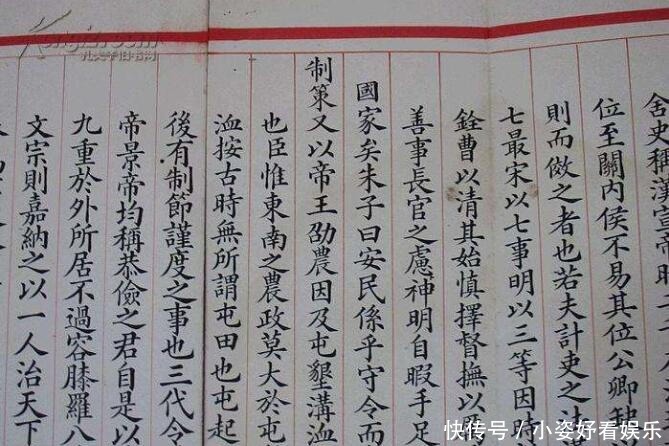 舍史稱漢宣帝
位至關內侯不易其位公卿缺
則而倣之者也若夫計吏之法
七最宋以七事明以三等因時
銓曹以清其始慎擇督撫以
善事長官之慮神明自暇手足
國家矣朱子曰安民係乎守令而
制策又以帝王劭農因及屯墾溝洫
也臣惟東南之農政莫大於屯
洫按古時無所謂屯田也屯起
後有制節謹度之事也三代令
帝景帝均稱恭儉之君自是以
九重於外所居不過容膝羅八
文宗則嘉納之以一人治天下
快传号/小姿好看娱乐